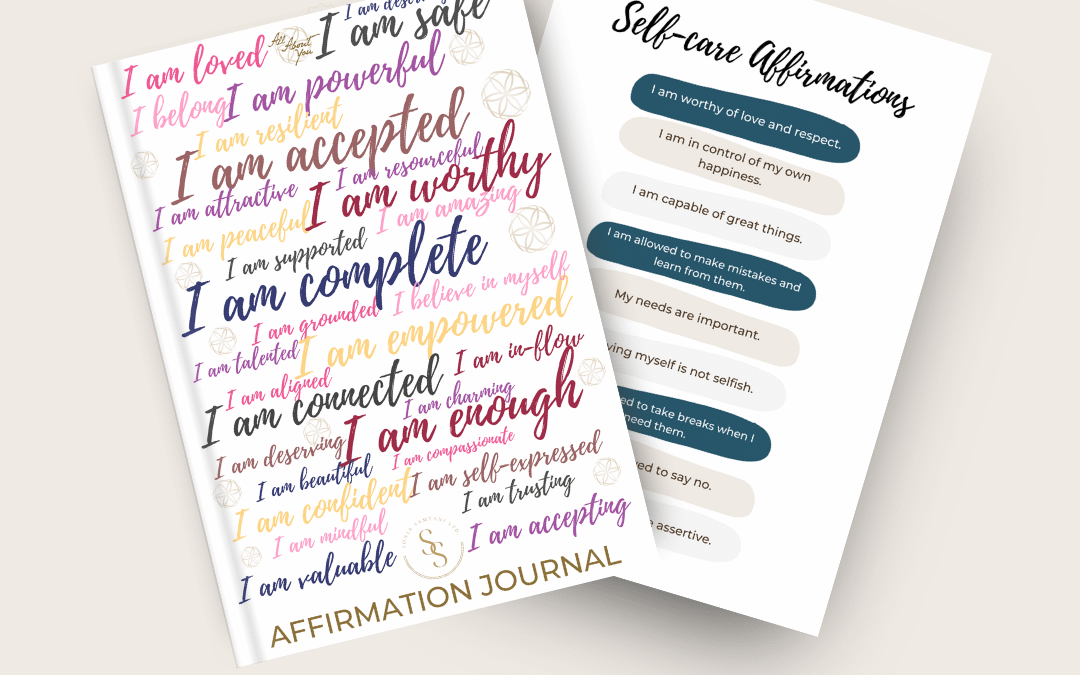 I am deserving
I am safe
I am loved
All About You
I belong
I am powerful
I am resilient
I am accepted
I am resourceful
I am attractive
I am worthy
I am peaceful
I am amazing
I am supported
I am complete
I believe in myself
I am grounded
I am empowered
I am talented
I am in-flow
I am aligned
I am connected
I am charming
I am enough
I am deserving
I am compassionate
I am beautiful
I am self-expressed
I am confident
I am trusting
I am mindful
I am accepting
SS
I am valuable
AFFIRMATION JOURNAL
Self-care Affirmations
I am worthy of love and respect.
I am in control of my own
happiness.
I am capable of great things.
I am allowed to make mistakes and
learn from them.
My needs are important.
myself is not selfish.
to take breaks when I
need them.
to say no.
assertive.